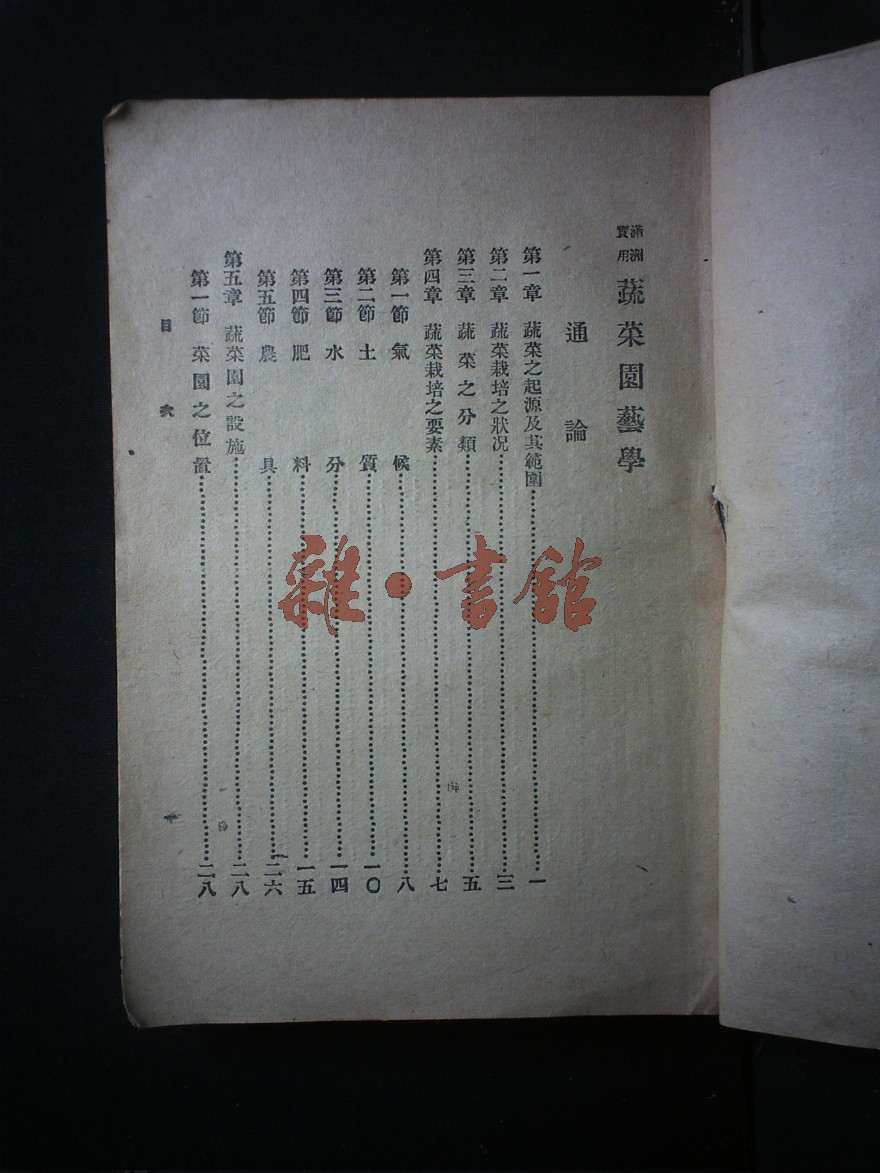 滿洲實用 蔬菜園藝學
通論
第一章 蔬菜之起源及其範圍……一
第二章 蔬菜栽培之狀況……三
第三章 蔬菜之分類……五
第四章 蔬菜栽培之要素……七
第一節 氣候……八
第二節 土質……一〇
第三節 水分……一四
第四節 肥料……一五
第五節 農具……二六
第五章 蔬菜園之設施……二八
第一節 菜園之位置……二八
目 次
雜·書館